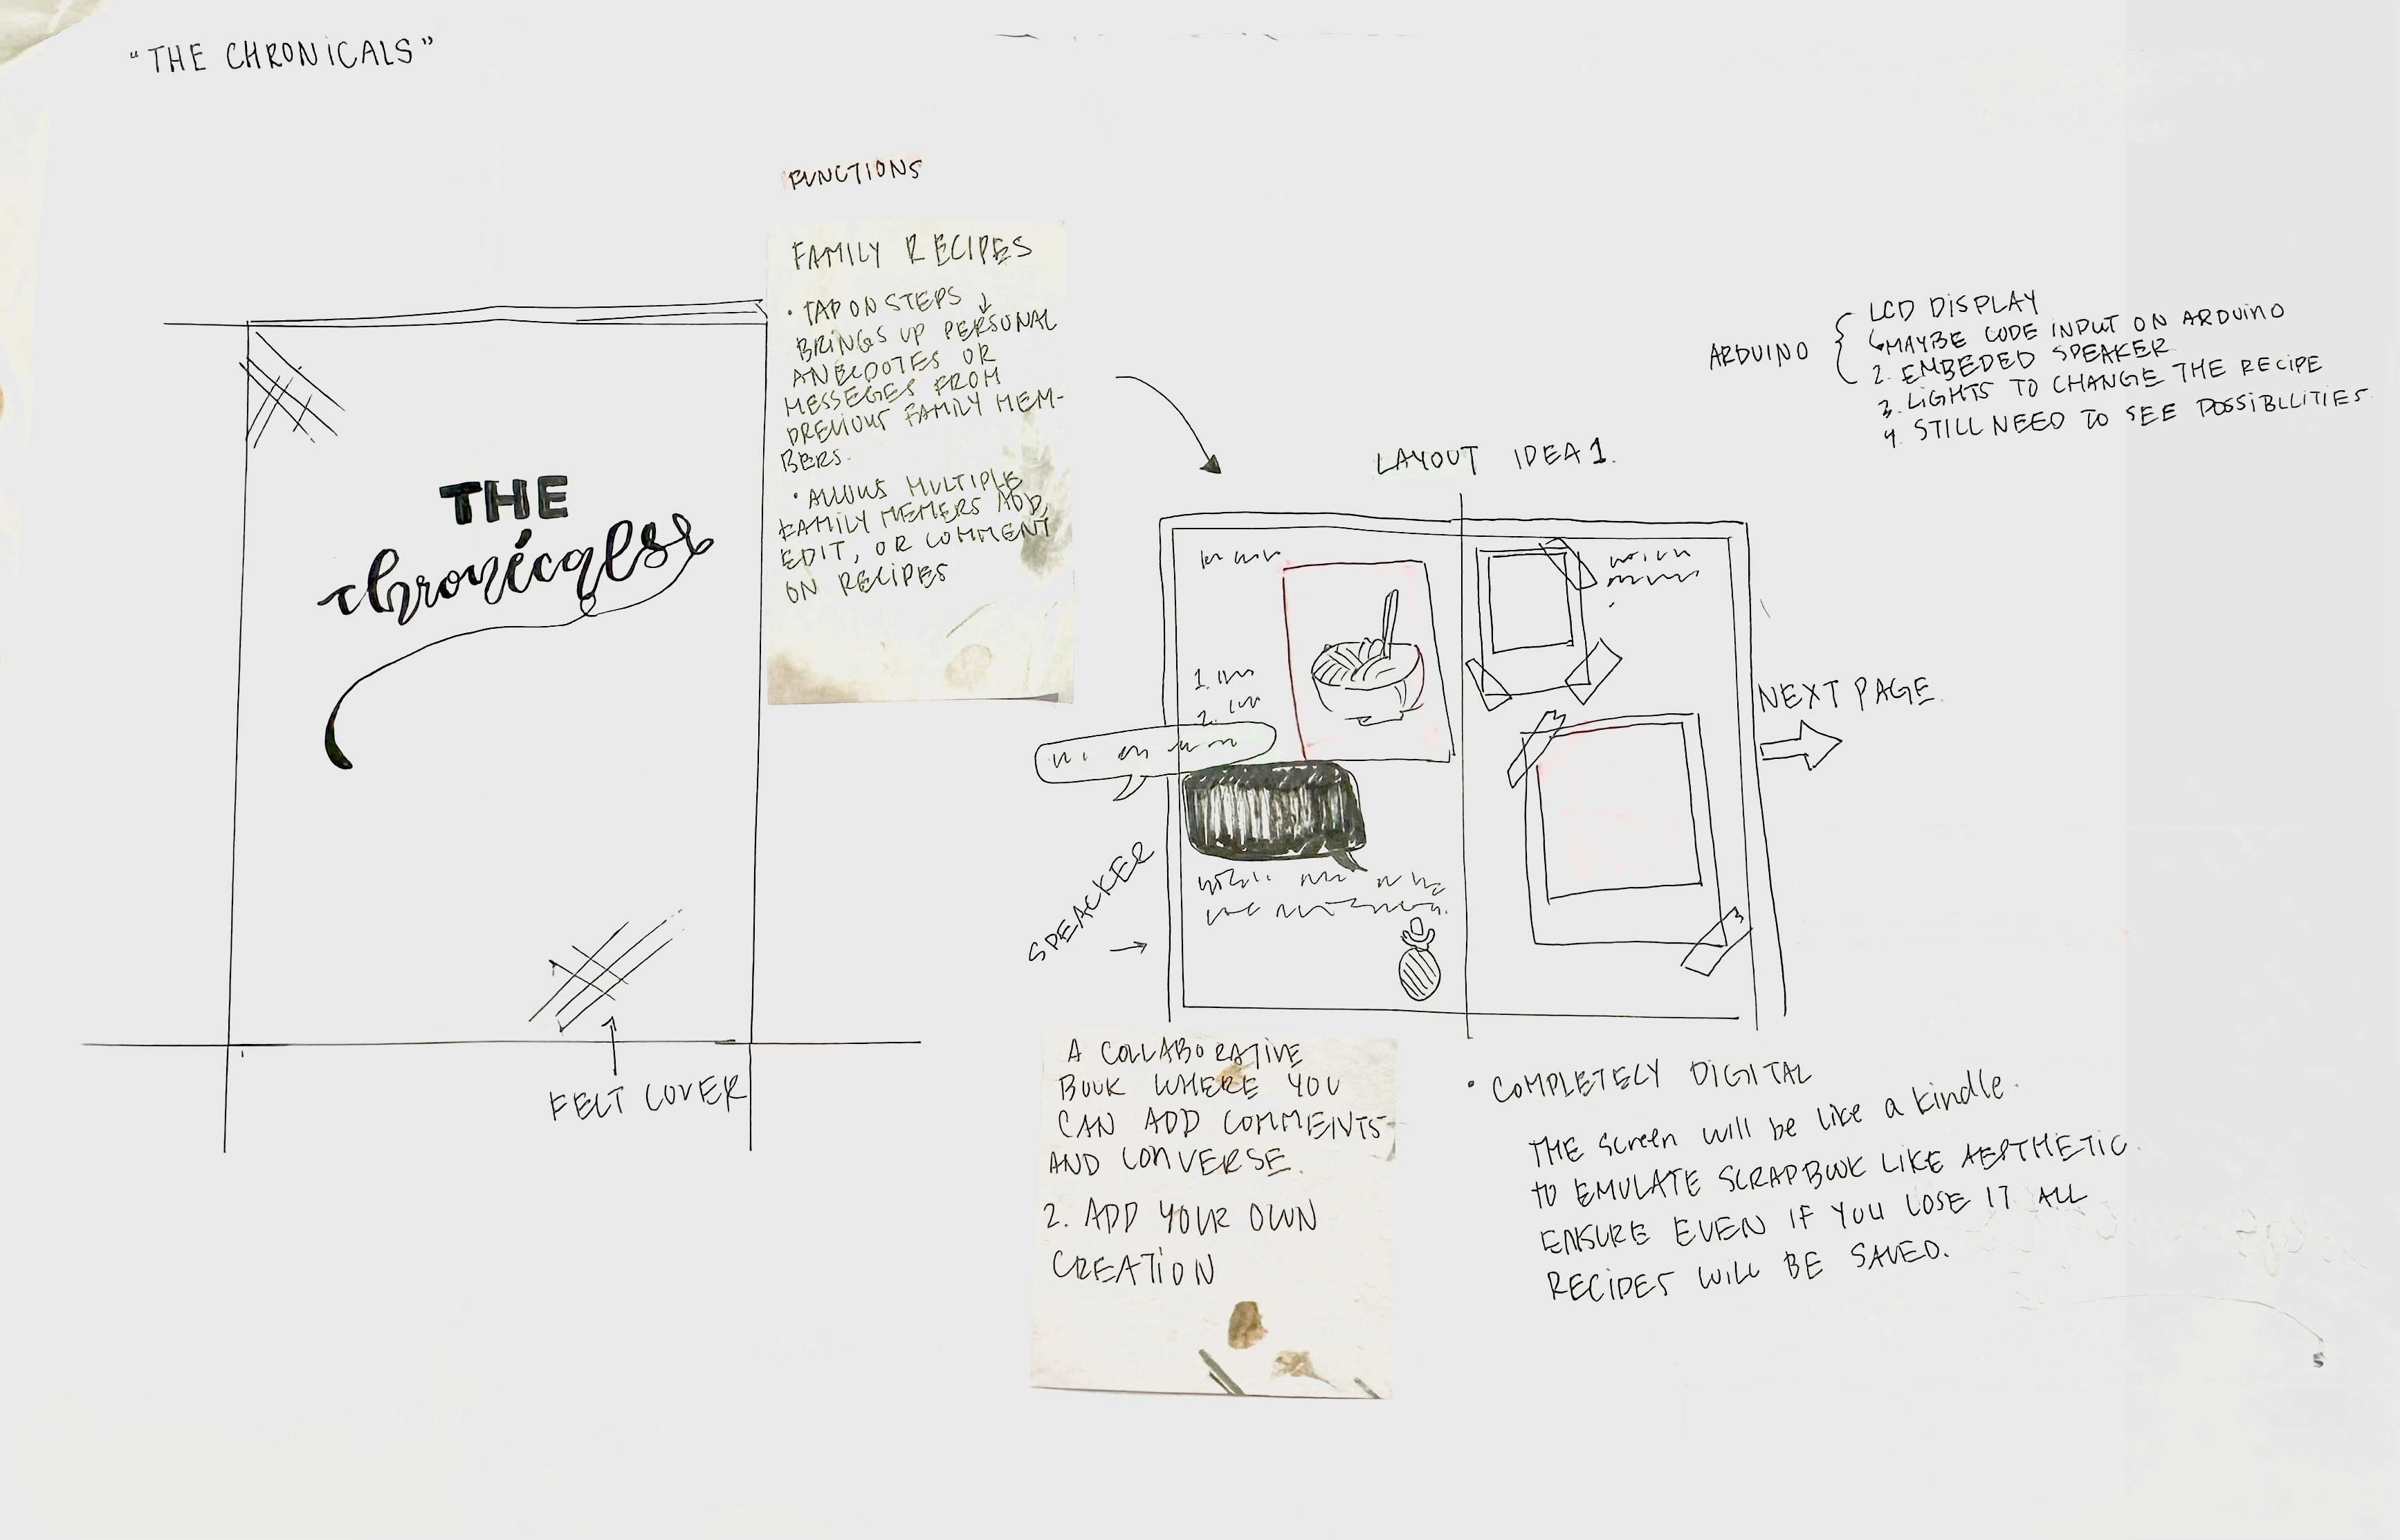 "THE CHRONICALS"
FUNCTIONS
FAMILY RECIPES
• TAP ON STEPS ↓
BRINGS UP PERSONAL
ANECDOTES OR
MESSEGES FROM
PREVIOUS FAMILY MEM-
BERS.
• ALLOWS MULTIPLE
FAMILY MEMERS ADD,
EDIT, OR COMMENT
ON RECIPES
THE
chronicals
FELT COVER
ARDUINO
LCD DISPLAY
↳MAYBE CODE INPUT ON ARDUINO
2. EMBEDED SPEAKER
3. LIGHTS TO CHANGE THE RECIPE
4. STILL NEED TO SEE POSSIBLLITIES.
LAYOUT IDEA 1.
1.
2.
NEXT PAGE.
SPEACKER
A COLLABORATIVE
BOOK WHERE YOU
CAN ADD COMMENTS
AND CONVERSE.
2. ADD YOUR OWN
CREATION
• COMPLETELY DIGITAL
THE screen will be like a kindle.
to EMULATE SCRAPBOOK LIKE AESTHETIC.
ENSURE EVEN IF YOU LOSE IT ALL
RECIPES WILL BE SAVED.